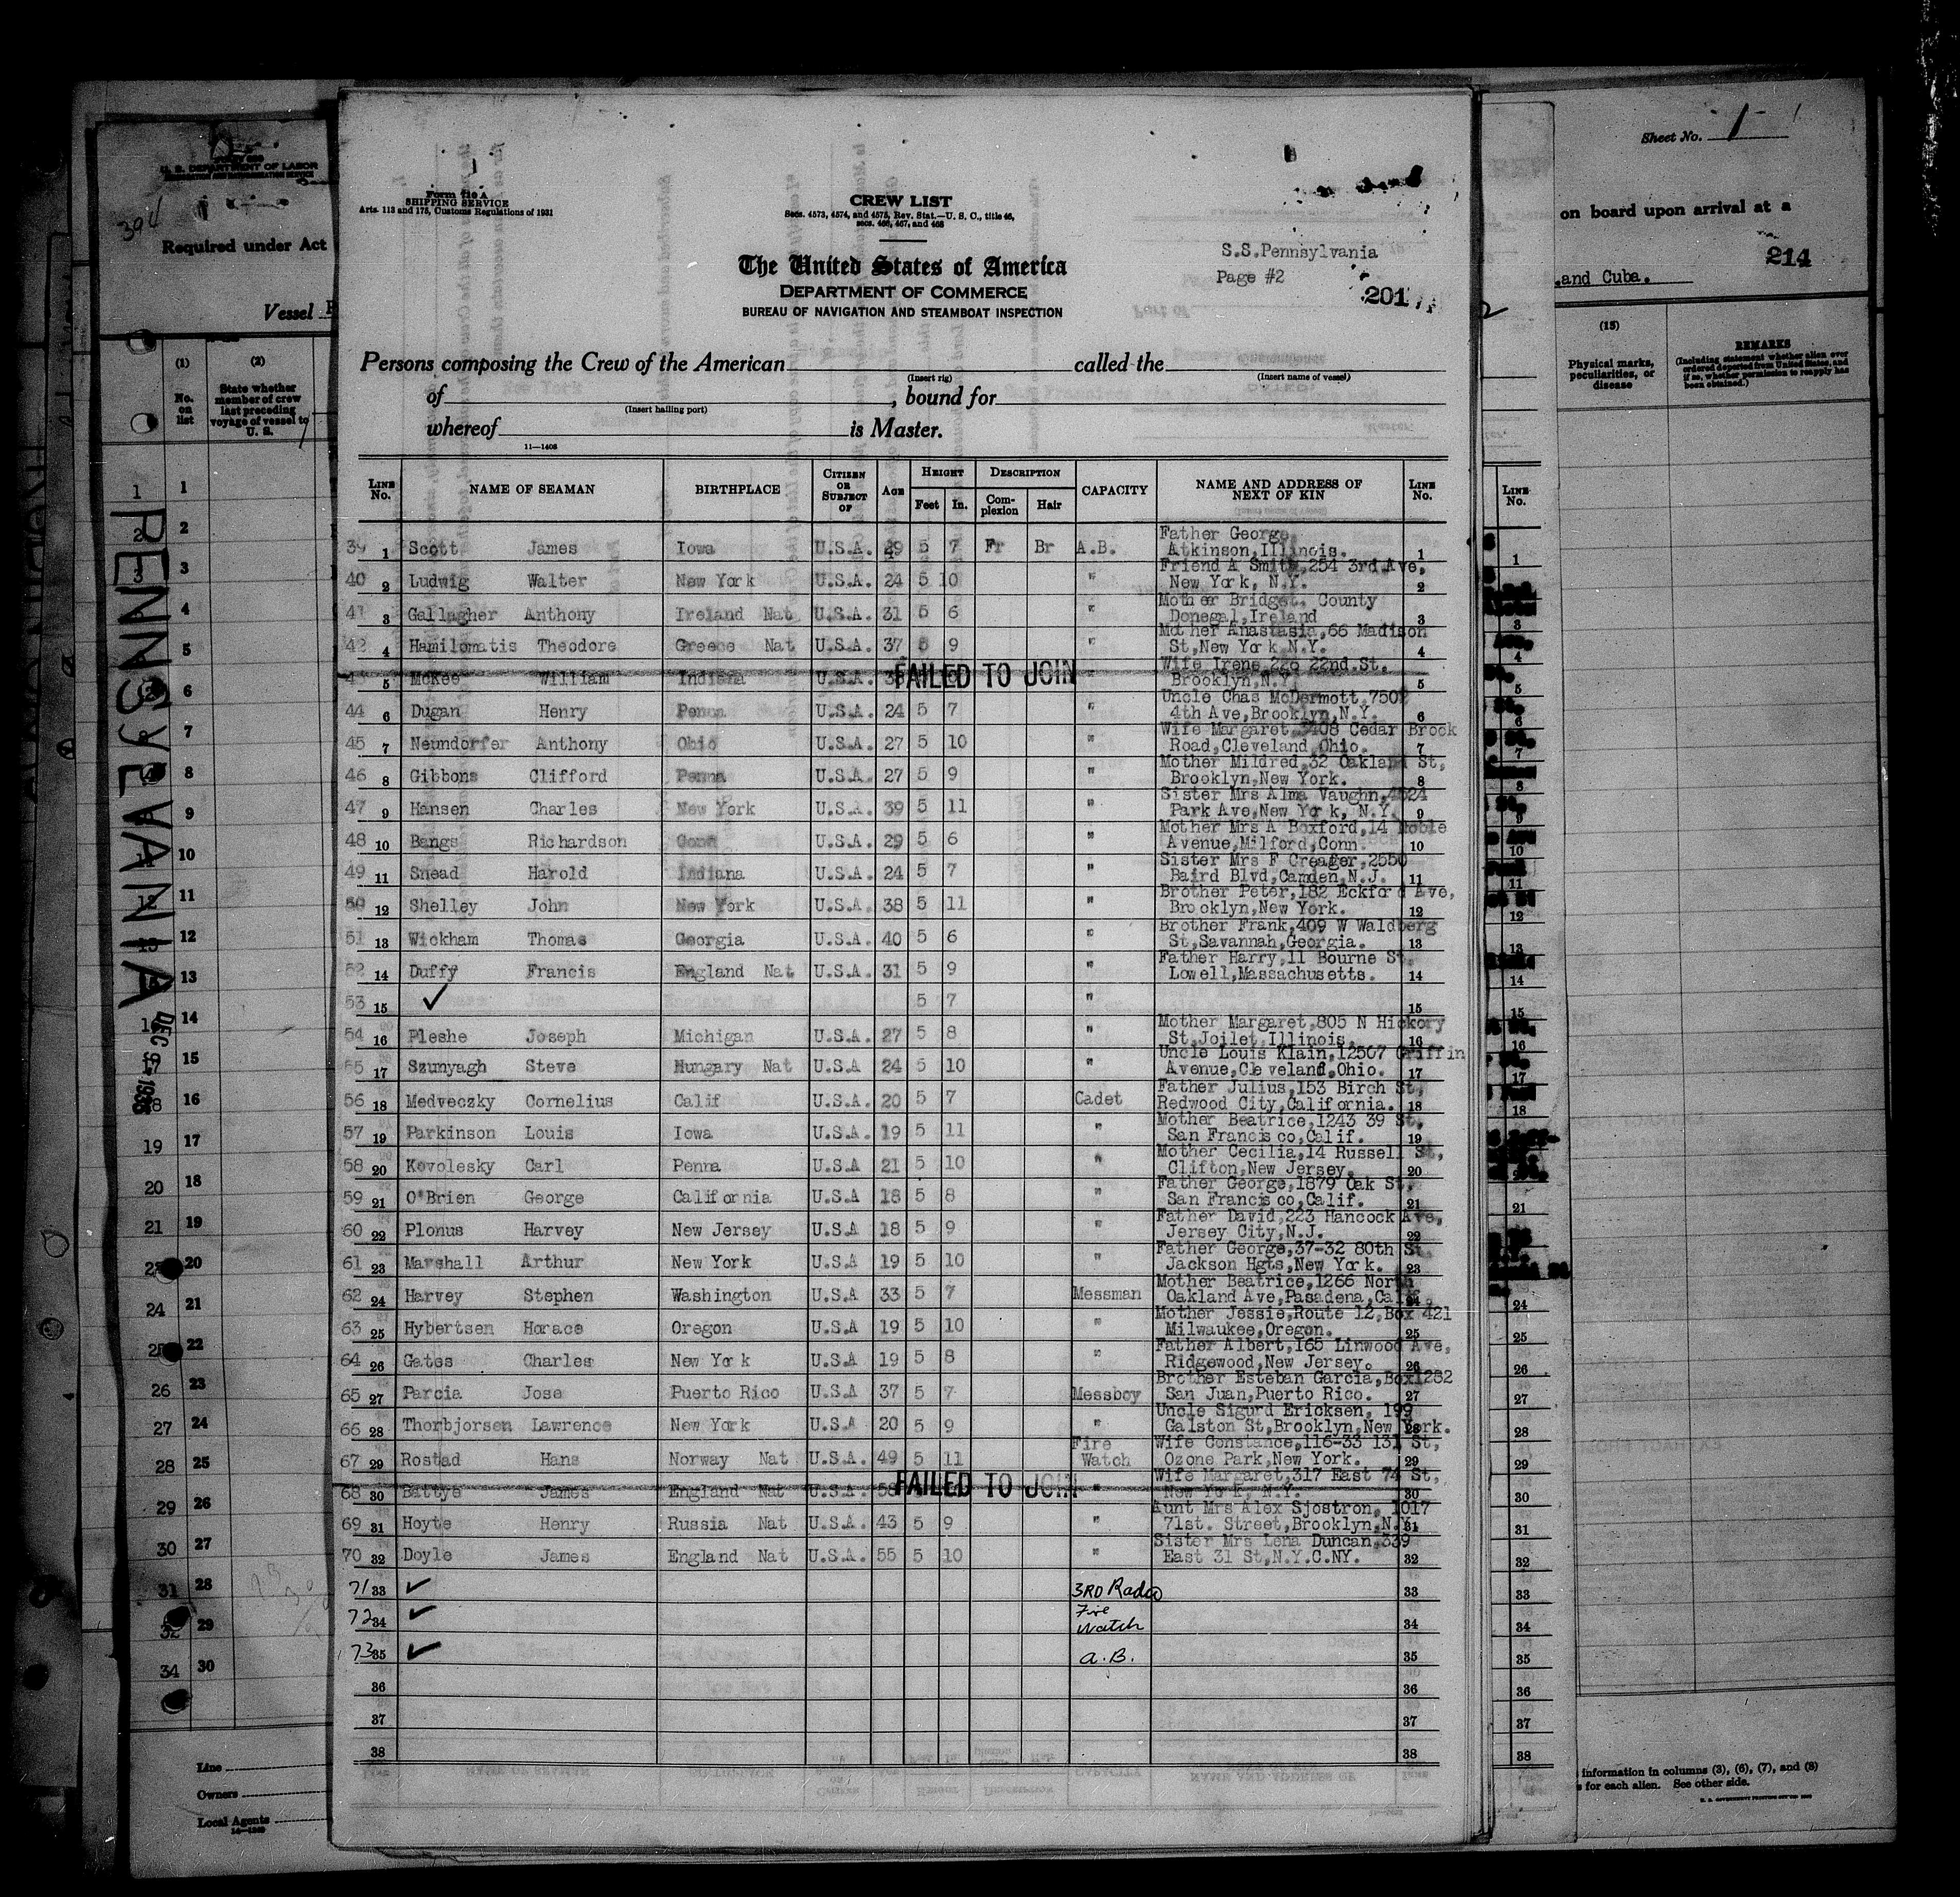 Form 710 A
SHIPPING SERVICE
Arts. 113 and 175, Customs Regulations of 1931
CREW LIST
Secs. 4573, 4574, and 4575, Rev. Stat.—U. S. C., title 46,
secs. 466, 467, and 468
The United States of America
DEPARTMENT OF COMMERCE
BUREAU OF NAVIGATION AND STEAMBOAT INSPECTION
S.S.Pennsylvania
Page #2
201
Persons composing the Crew of the American called the
(Insert rig) (Insert name of vessel)
of , bound for
(Insert hailing port)
whereof is Master.
11—1406
LINE No. NAME OF SEAMAN BIRTHPLACE CITIZEN OR SUBJECT OF AGE HEIGHT Feet In. DESCRIPTION Complexion Hair CAPACITY NAME AND ADDRESS OF NEXT OF KIN LINE No.
39 1 Scott James Iowa U.S.A. 29 5 7 Fr Br A.B. Father George, Atkinson,Illinois. 1
40 2 Ludwig Walter New York U.S.A. 24 5 10 " Friend A Smith,254 3rd Ave, New York, N.Y. 2
41 3 Gallagher Anthony Ireland Nat U.S.A. 31 5 6 " Mother Bridget, County Donegal,Ireland 3
42 4 Hamilomatis Theodore Greece Nat U.S.A. 37 5 9 " Mother Anastasia,66 Madison St,New York N.Y. 4
5 McKee William Indiana U.S.A. FAILED TO JOIN " Wife Irene,226 22nd.St. Brooklyn,N.Y. 5
44 6 Dugan Henry Penna U.S.A. 24 5 7 " Uncle Chas McDermott,7502 4th Ave,Brooklyn,N.Y. 6
45 7 Neundorfer Anthony Ohio U.S.A. 27 5 10 " Wife Margaret,3408 Cedar Brook Road,Cleveland,Ohio. 7
46 8 Gibbons Clifford Penna U.S.A. 27 5 9 " Mother Mildred,32 Oakland St, Brooklyn,New York. 8
47 9 Hansen Charles New York U.S.A. 39 5 11 " Sister Mrs Alma Vaughn,4524 Park Ave,New York, N.Y. 9
48 10 Bangs Richardson Conn U.S.A. 29 5 6 " Mother Mrs A Boxford,14 Noble Avenue,Milford,Conn. 10
49 11 Snead Harold Indiana U.S.A. 24 5 7 " Sister Mrs F Creager,2550 Baird Blvd,Camden,N.J. 11
50 12 Shelley John New York U.S.A. 38 5 11 " Brother Peter,182 Eckford Ave, Brooklyn,New York. 12
51 13 Wickham Thomas Georgia U.S.A. 40 5 6 " Brother Frank,409 W Waldberg St,Savannah,Georgia. 13
52 14 Duffy Francis England Nat U.S.A. 31 5 9 " Father Harry,11 Bourne St, Lowell,Massachusetts. 14
53 15 ✓ 5 7 " 15
54 16 Pleshe Joseph Michigan U.S.A. 27 5 8 " Mother Margaret,805 N Hickory St,Joilet,Illinois. 16
55 17 Szunyagh Steve Hungary Nat U.S.A 24 5 10 " Uncle Louis Klain,12507 Griffin Avenue,Cleveland,Ohio. 17
56 18 Medveczky Cornelius Calif U.S.A. 20 5 7 Cadet Father Julius,153 Birch St, Redwood City,California. 18
57 19 Parkinson Louis Iowa U.S.A. 19 5 11 " Mother Beatrice,1243 39 St, San Francisco,Calif. 19
58 20 Kovolesky Carl Penna U.S.A 21 5 10 " Mother Cecilia,14 Russell St, Clifton,New Jersey. 20
59 21 O'Brien George California U.S.A 18 5 8 " Father George,1879 Oak St, San Francisco,Calif. 21
60 22 Plonus Harvey New Jersey U.S.A 18 5 9 " Father David,223 Hancock Ave, Jersey City,N.J. 22
61 23 Marshall Arthur New York U.S.A 19 5 10 " Father George,37-32 80th St, Jackson Hgts,New York. 23
62 24 Harvey Stephen Washington U.S.A 33 5 7 Messman Mother Beatrice,1266 North Oakland Ave,Pasadena,Calif. 24
63 25 Hybertsen Horace Oregon U.S.A 19 5 10 " Mother Jessie,Route 12,Box 421 Milwaukee,Oregon. 25
64 26 Gates Charles New York U.S.A 19 5 8 " Father Albert,165 Linwood Ave, Ridgewood,New Jersey. 26
65 27 Parcia Jose Puerto Rico U.S.A 37 5 7 Messboy Brother Esteban Garcia,Box1282 San Juan,Puerto Rico. 27
66 28 Thorbjorsen Lawrence New York U.S.A 20 5 9 " Uncle Sigurd Ericksen, 199 Galston St,Brooklyn,New York. 28
67 29 Rostad Hans Norway Nat U.S.A. 49 5 11 Fire Watch Wife Constance,116-33 131 St, Ozone Park,New York. 29
68 30 Battye James England Nat U.S.A. 58 FAILED TO JOIN " Wife Margaret,317 East 74 St, New York, N.Y. 30
69 31 Hoyte Henry Russia Nat U.S.A. 43 5 9 " Aunt Mrs Alex Sjostron, 1017 71st. Street,Brooklyn,N.Y. 31
70 32 Doyle James England Nat U.S.A. 55 5 10 " Sister Mrs Lena Duncan,339 East 31 St,N.Y.C.NY. 32
71 33 ✓ 3RD Radio 33
72 34 ✓ Fire Watch 34
73 35 ✓ A.B. 35
36 36
37 37
38 38
U. S. DEPARTMENT OF LABOR
394
Required under Act
Vessel
(1) (2)
No. on list
State whether member of crew last preceding voyage of vessel to U. S.
PENNSYLVANIA
DEC
Line
Owners
Local Agents
Sheet No. 1
on board upon arrival at a
214
and Cuba.
(15)
Physical marks, peculiarities, or disease
REMARKS
(Including statement whether alien ever ordered deported from United States, and if so, whether permission to reapply has been obtained.)
LINE No.
information in columns (3), (6), (7), and (8)
for each alien. See other side.